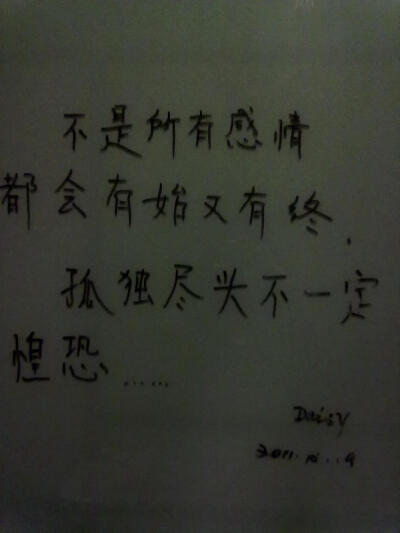 不是所有感情
都会有始又有终，
孤独尽头不一定
惶恐……
Daisy
2011.10..9